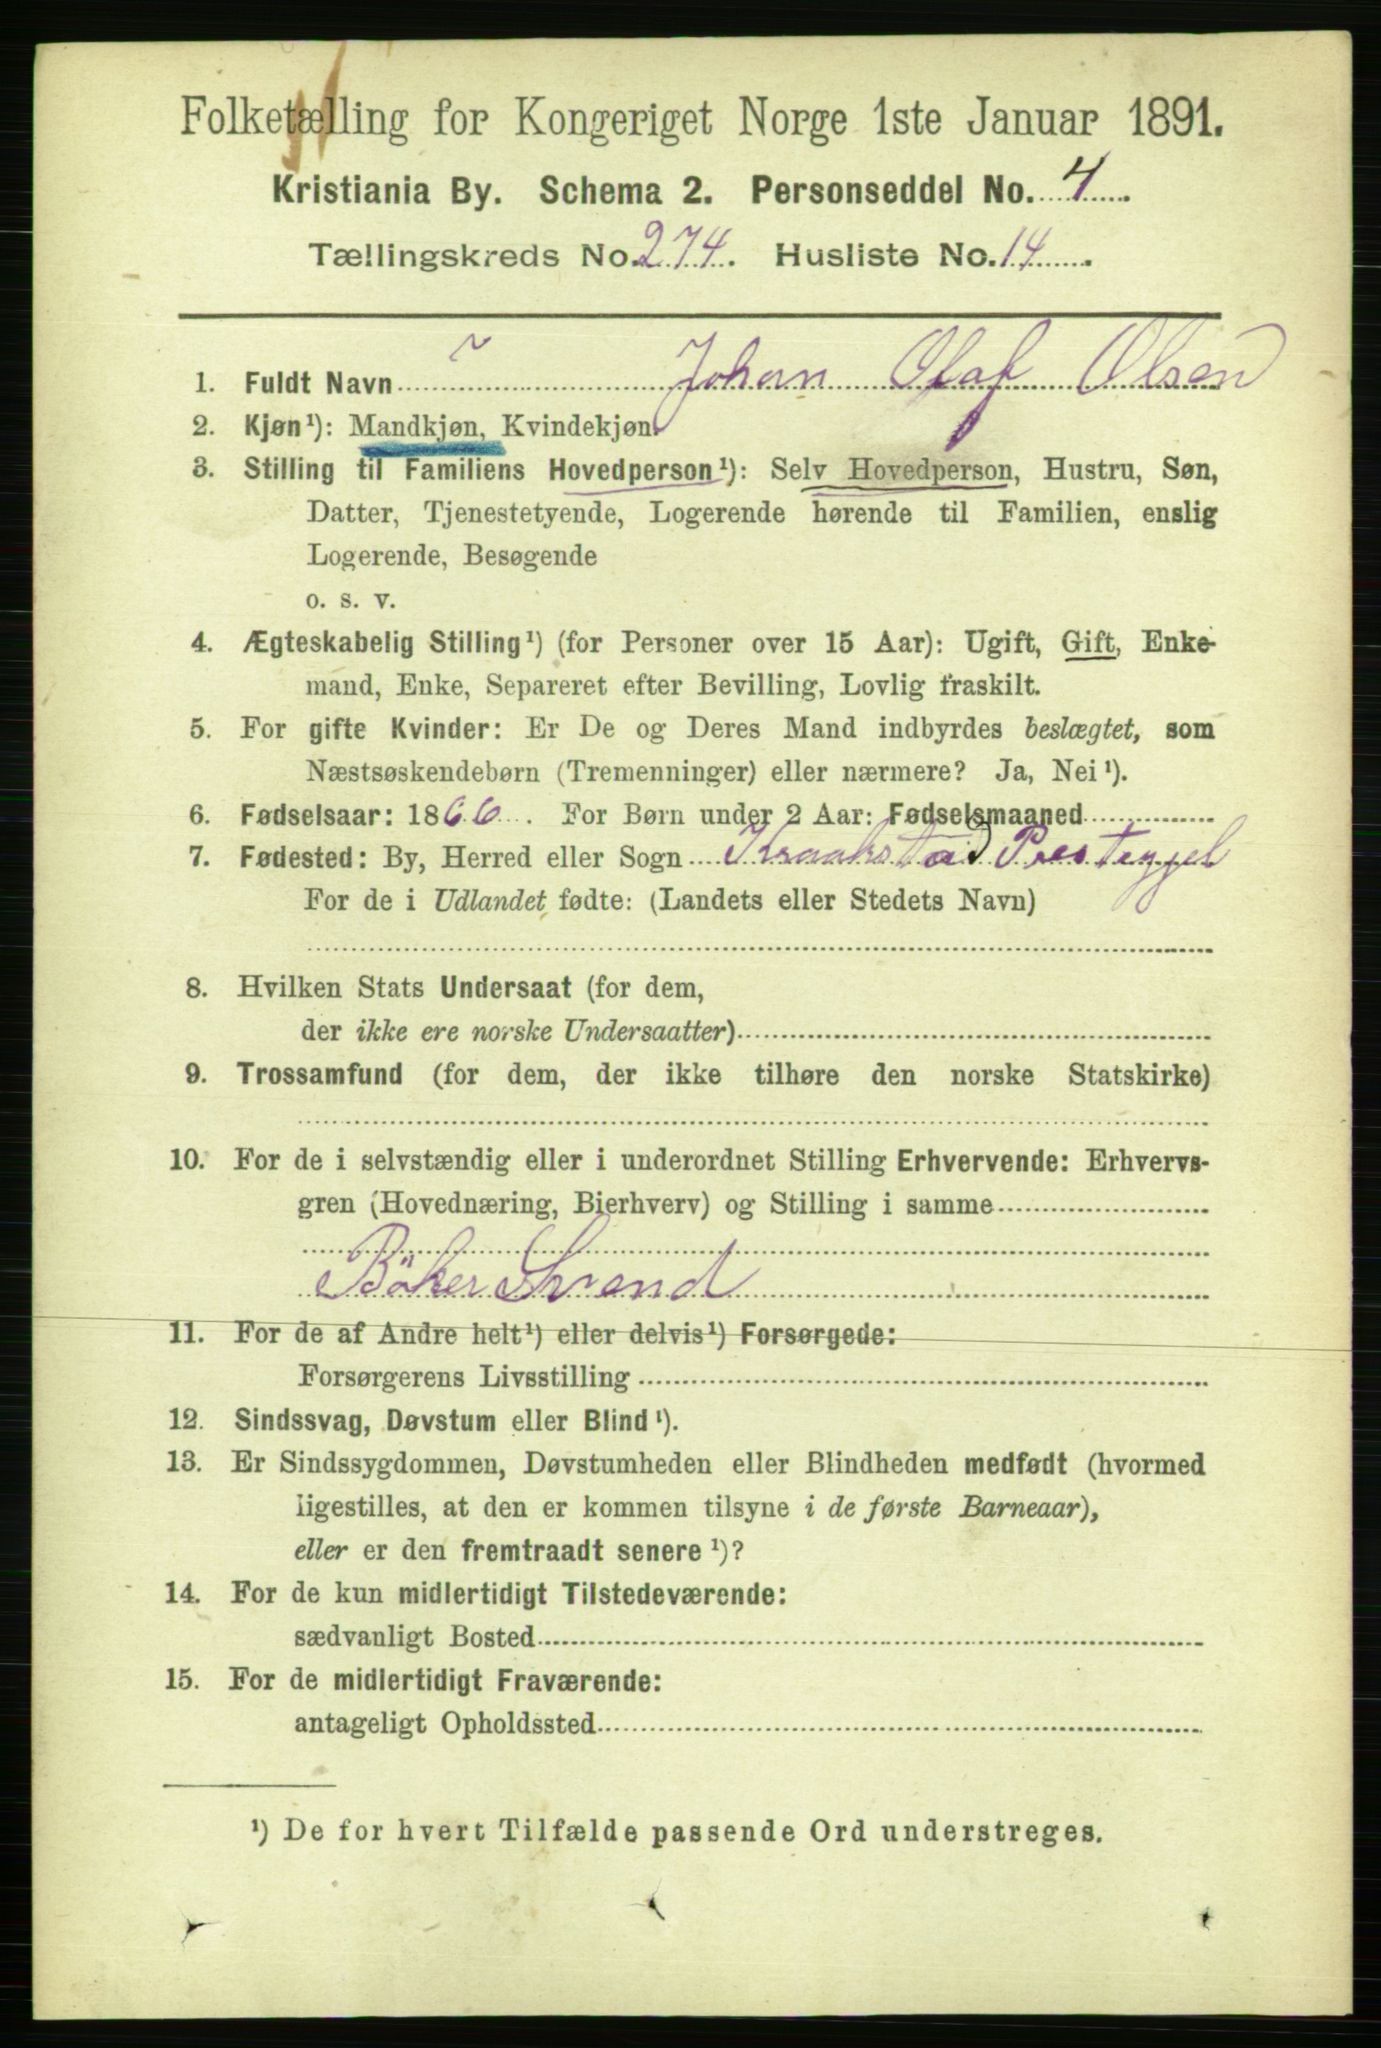 Folketælling for Kongeriget Norge 1ste Januar 1891.
Kristiania By. Schema 2. Personseddel No. 4
Tællingskreds No. 274. Husliste No. 14
1. Fuldt Navn Johan Olaf Olsen
2. Kjøn¹): Mandkjøn, Kvindekjøn.
3. Stilling til Familiens Hovedperson¹): Selv Hovedperson, Hustru, Søn,
Datter, Tjenestetyende, Logerende hørende til Familien, enslig
Logerende, Besøgende
o. s. v.
4. Ægteskabelig Stilling¹) (for Personer over 15 Aar): Ugift, Gift, Enke-
mand, Enke, Separeret efter Bevilling, Lovlig fraskilt.
5. For gifte Kvinder: Er De og Deres Mand indbyrdes beslægtet, som
Næstsøskendebørn (Tremenninger) eller nærmere? Ja, Nei¹).
6. Fødselsaar: 1866. For Børn under 2 Aar: Fødselsmaaned
7. Fødested: By, Herred eller Sogn Kraakstad Prestegjel
For de i Udlandet fødte: (Landets eller Stedets Navn)
8. Hvilken Stats Undersaat (for dem,
der ikke ere norske Undersaatter)
9. Trossamfund (for dem, der ikke tilhøre den norske Statskirke)
10. For de i selvstændig eller i underordnet Stilling Erhvervende: Erhvervs-
gren (Hovednæring, Bierhverv) og Stilling i samme
Böker Svend
11. For de af Andre helt¹) eller delvis¹) Forsørgede:
Forsørgerens Livsstilling
12. Sindssvag, Døvstum eller Blind¹).
13. Er Sindssygdommen, Døvstumheden eller Blindheden medfødt (hvormed
ligestilles, at den er kommen tilsyne i de første Barneaar),
eller er den fremtraadt senere¹)?
14. For de kun midlertidigt Tilstedeværende:
sædvanligt Bosted
15. For de midlertidigt Fraværende:
antageligt Opholdssted
¹) De for hvert Tilfælde passende Ord understreges.